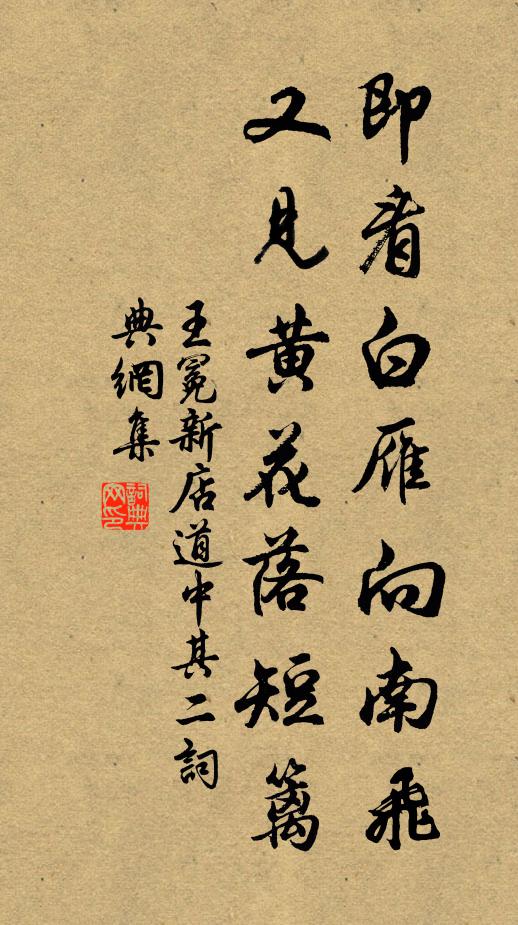 即看白雁向南飛
又見黃花落短籬
王冕新店道中其二詞
典網集
詞典
网印